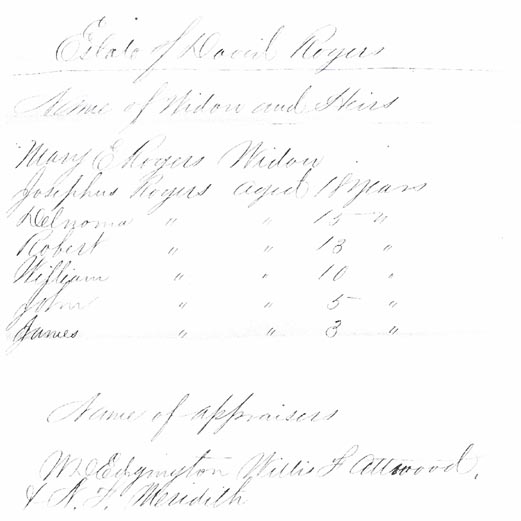 Estate of David Rogers
Name of Widow and Heirs
Mary E Rogers Widow
Josephus Rogers aged 18 years
Delnoma " " 15 "
Robert " " 13 "
William " " 10 "
John " " 5 "
James " " 3 "
Name of appraisers
W D Edgington Willis F Attwood,
& N. F. Meridith